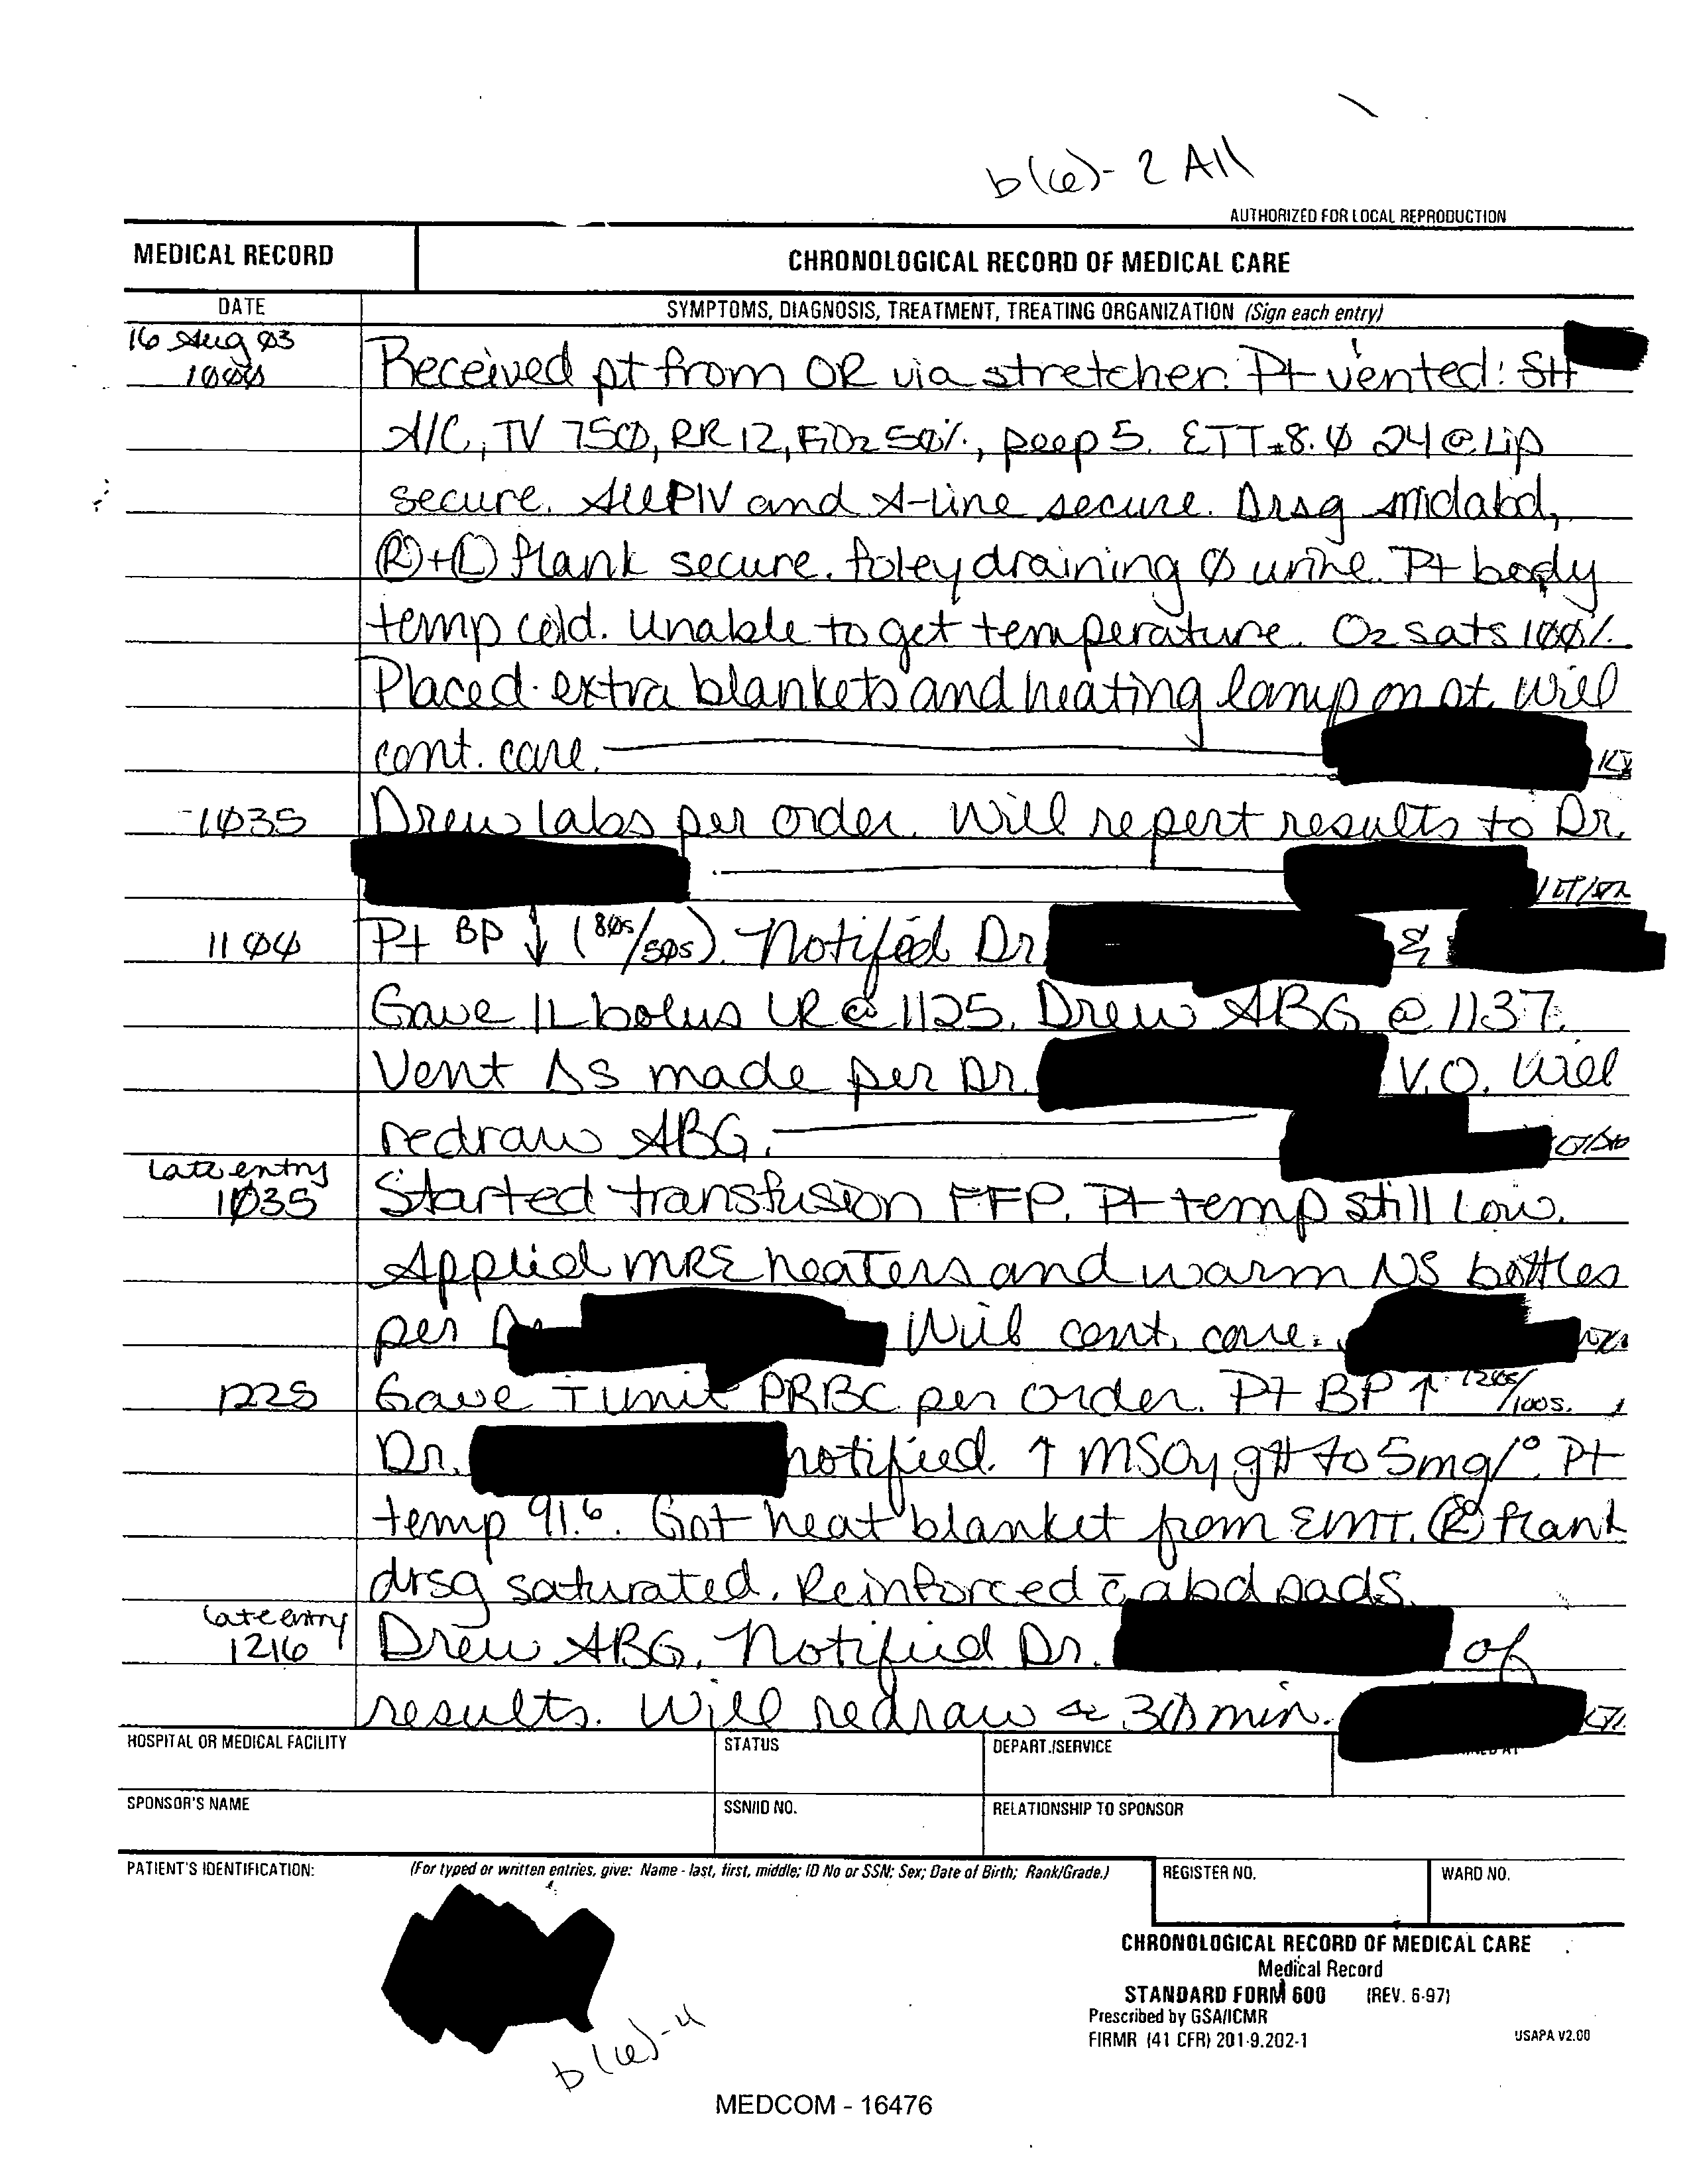 b(6)-2 All
AUTHORIZED FOR LOCAL REPRODUCTION
MEDICAL RECORD
CHRONOLOGICAL RECORD OF MEDICAL CARE
DATE
SYMPTOMS, DIAGNOSIS, TREATMENT, TREATING ORGANIZATION (Sign each entry)
16 Aug 03
1000 Received pt from OR via stretcher. Pt vented: SH
A/C, TV 750, RR 12, FiO2 50%, peep 5. ETT #8.0 24 @ Lip
secure. All PIV and A-line secure. Drsg midabd,
(R)+(L) flank secure. foley draining Ø urine. Pt body
temp cold. Unable to get temperature. O2 sats 100%.
Placed extra blankets and heating lamp on pt. Will
cont. care.
1035 Drew labs per order. Will report results to Dr.
1LT/
1104 Pt BP ↓ (80s/50s). Notified Dr &
Gave 1L bolus LR @ 1125. Drew ABG @ 1137.
Vent Δs made per Dr. V.O. Will
redraw ABG.
Late entry
1035 Started transfusion FFP. Pt temp still low.
Applied MRE heaters and warm NS bottles
per Dr Will cont. care.
1225 Gave I unit PRBC per order. Pt BP ↑ 120s/100s.
Dr. notified. ↑ MSO4 gtt to 5mg/°. Pt
temp 91.6. Got heat blanket from EMT. (R) flank
drsg saturated. Reinforced c̄ abd pads.
Late entry
1216 Drew ABG. Notified Dr. of
results. Will redraw 30 min.
HOSPITAL OR MEDICAL FACILITY
STATUS
DEPART./SERVICE
SPONSOR'S NAME
SSN/ID NO.
RELATIONSHIP TO SPONSOR
PATIENT'S IDENTIFICATION:
(For typed or written entries, give: Name - last, first, middle; ID No or SSN; Sex; Date of Birth; Rank/Grade.)
REGISTER NO.
WARD NO.
CHRONOLOGICAL RECORD OF MEDICAL CARE
Medical Record
STANDARD FORM 600 (REV. 6-97)
Prescribed by GSA/ICMR
FIRMR (41 CFR) 201-9.202-1
USAPA V2.00
b(6)-4
MEDCOM - 16476